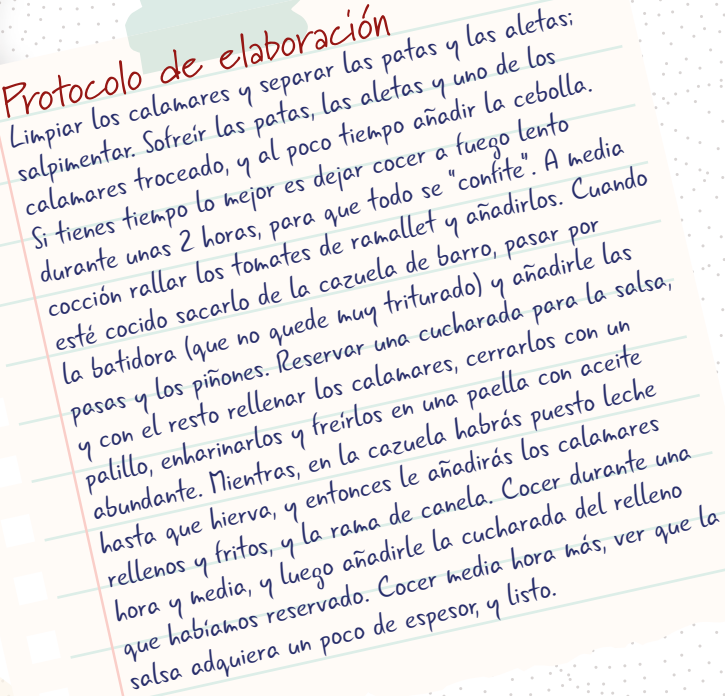 Protocolo de elaboración
Limpiar los calamares y separar las patas y las aletas;
salpimentar. Sofreír las patas, las aletas y uno de los
calamares troceado, y al poco tiempo añadir la cebolla.
Si tienes tiempo lo mejor es dejar cocer a fuego lento
durante unas 2 horas, para que todo se "confite". A media
cocción rallar los tomates de ramallet y añadirlos. Cuando
esté cocido sacarlo de la cazuela de barro, pasar por
la batidora (que no quede muy triturado) y añadirle las
pasas y los piñones. Reservar una cucharada para la salsa,
y con el resto rellenar los calamares, cerrarlos con un
palillo, enharinarlos y freírlos en una paella con aceite
abundante. Mientras, en la cazuela habrás puesto leche
hasta que hierva, y entonces le añadirás los calamares
rellenos y fritos, y la rama de canela. Cocer durante una
hora y media, y luego añadirle la cucharada del relleno
que habíamos reservado. Cocer media hora más, ver que la
salsa adquiera un poco de espesor, y listo.